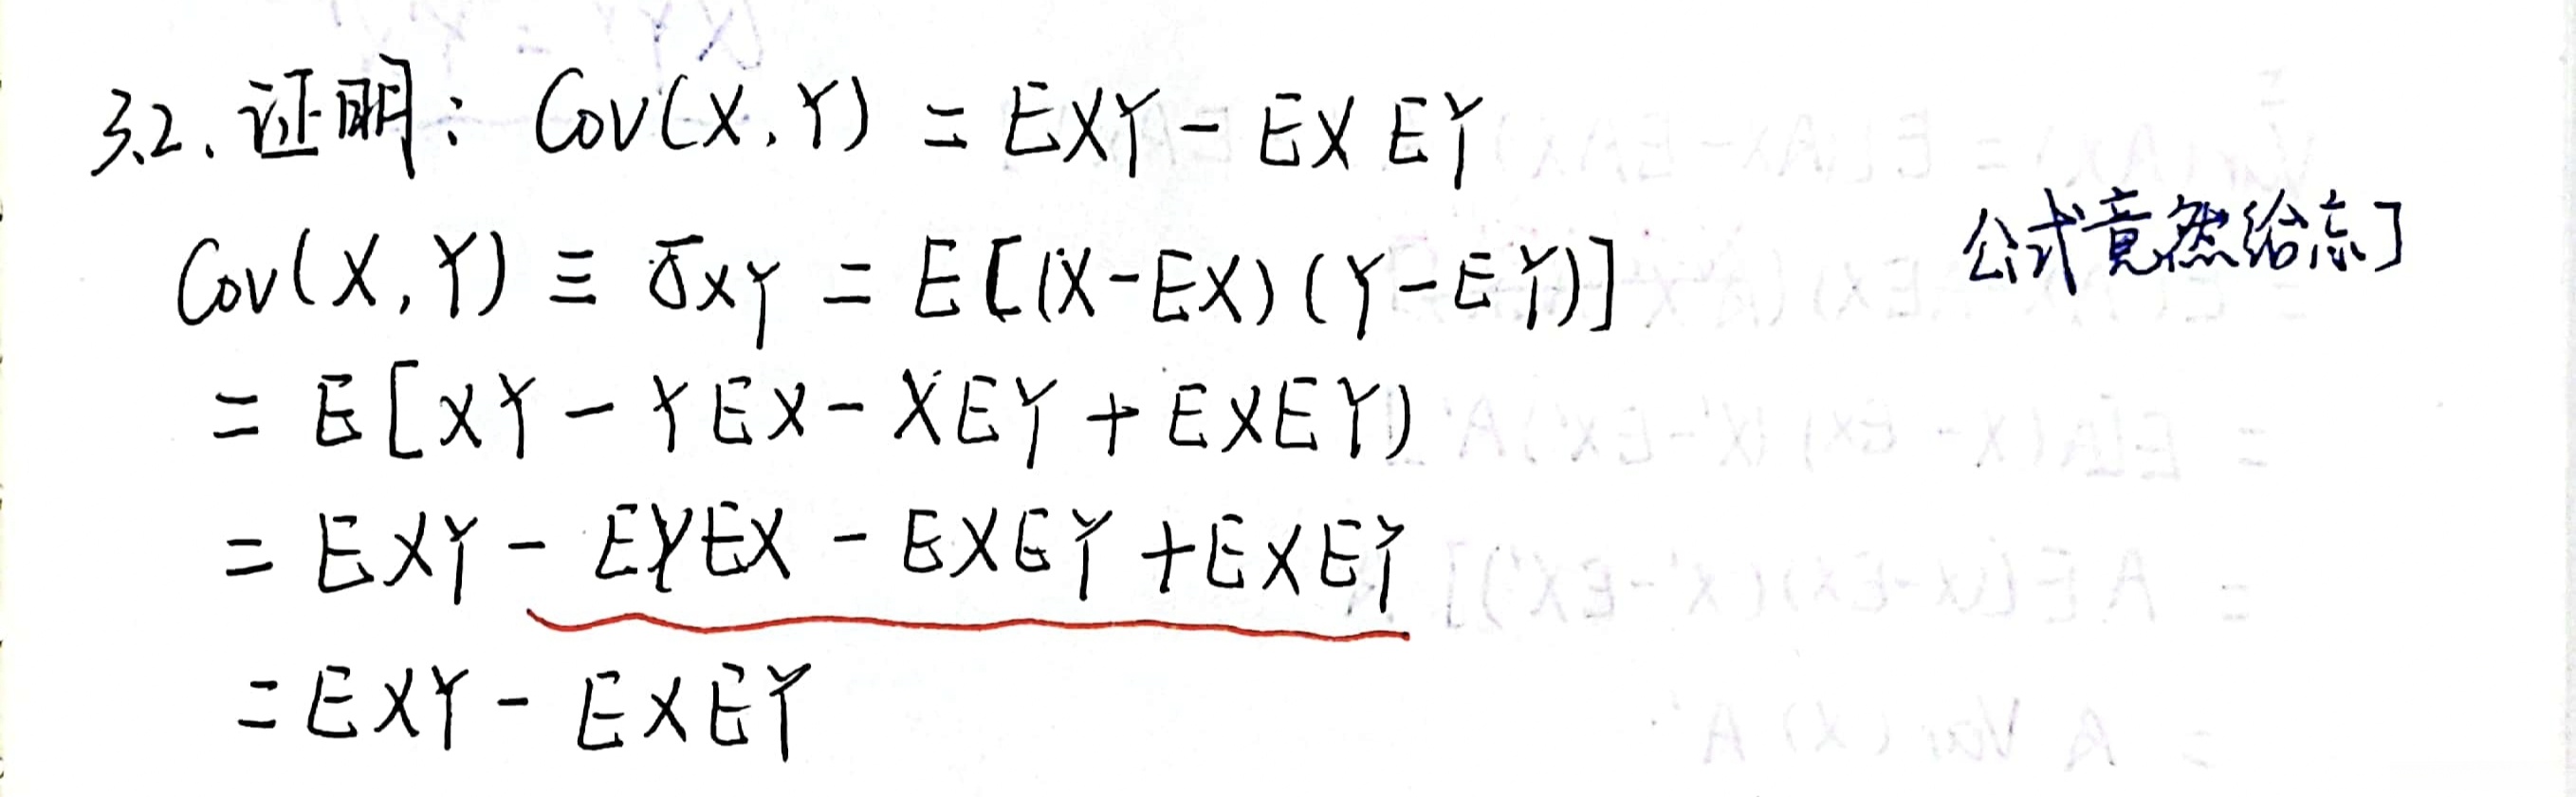 3.2. 证明: Cov(X,Y) = EXY - EX EY
公式竟然给忘了
Cov(X,Y) ≡ σXY = E[(X-EX)(Y-EY)]
= E[XY - YEX - XEY + EXEY)
= EXY - EYEX - EXEY + EXEY
= EXY - EXEY